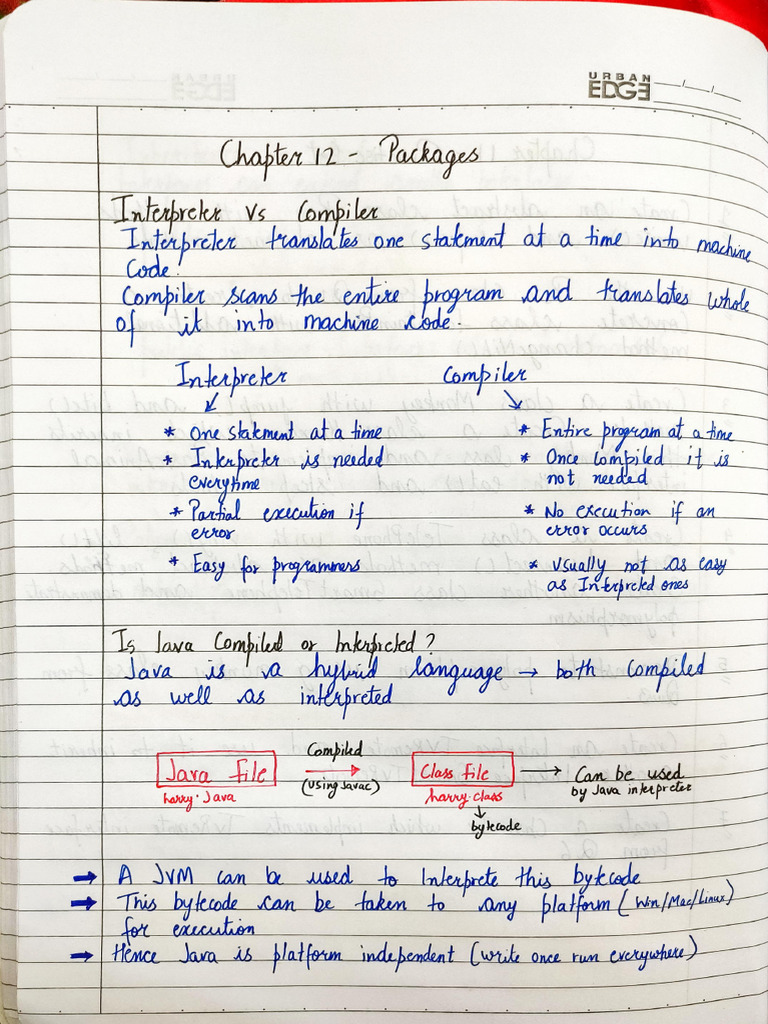 URBAN
EDGE
Chapter 12 - Packages
Interpreter Vs Compiler
Interpreter translates one statement at a time into machine
Code.
Compiler scans the entire program and translates whole
of it into machine code.
Interpreter Compiler
* One statement at a time * Entire program at a time
* Interpreter is needed * Once compiled it is
everytime not needed
* Partial execution if * No execution if an
error error occurs
* Easy for programmers * Usually not as easy
as Interpreted ones
Is Java Compiled or Interpreted?
Java is a hybrid language → both compiled
as well as interpreted
Compiled
Java File → Class File → Can be used
harry.Java (Using Javac) harry.class by Java interpreter
↓
bytecode
→ A JVM can be used to Interprete this bytecode
→ This bytecode can be taken to any platform (Win/Mac/Linux)
for execution
→ Hence Java is platform independent (write once run everywhere)